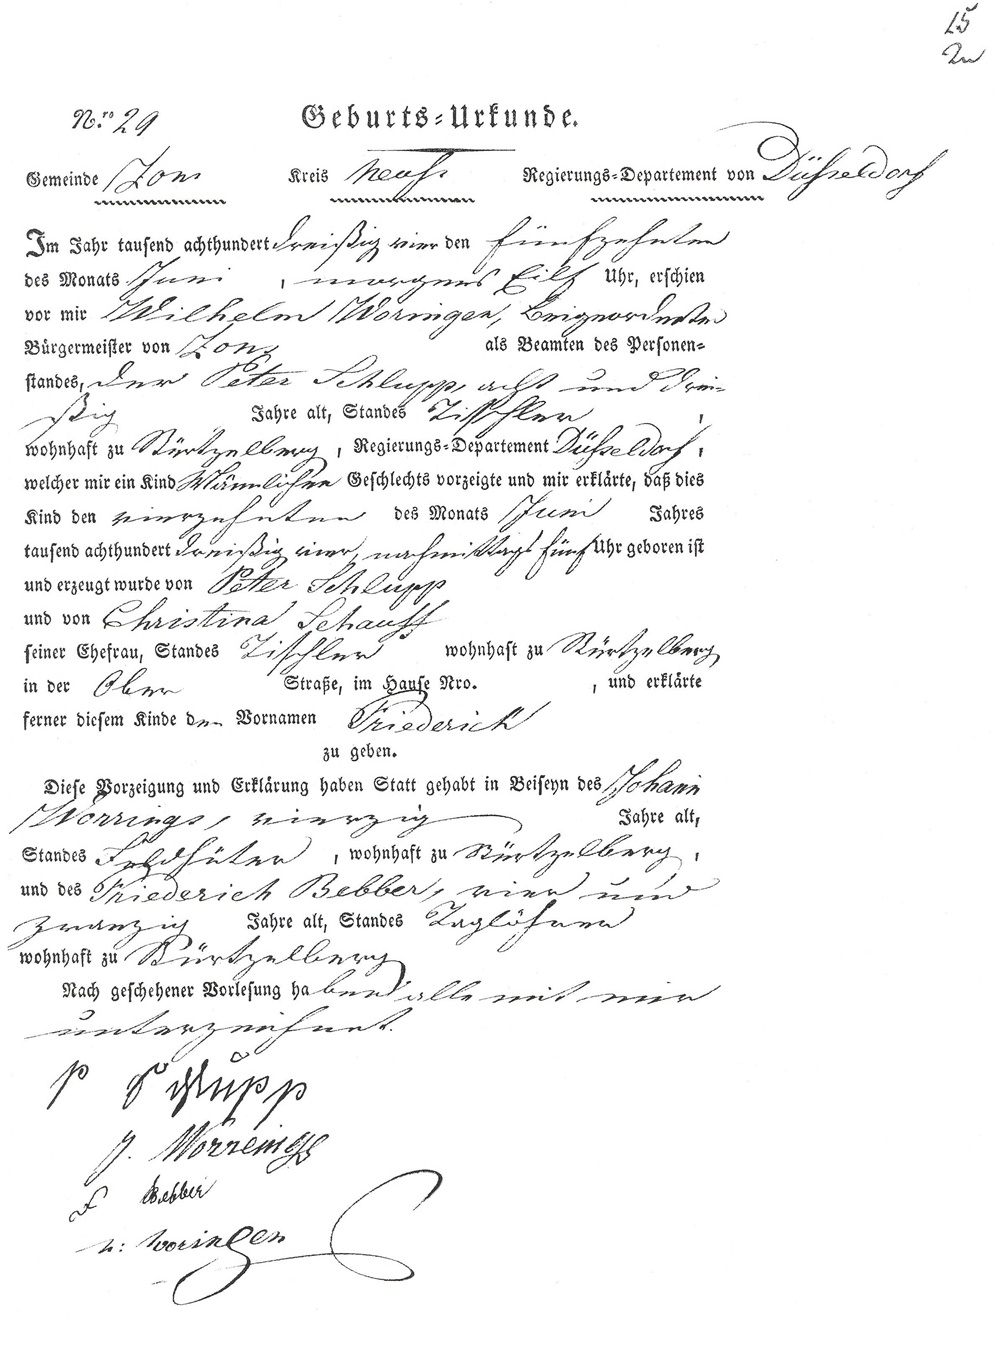 15
Nro 29
Geburts-Urkunde.
Gemeinde Zons Kreis Neuss Regierungs-Departement von Düsseldorf
Im Jahr tausend achthundert dreißig vier den fünfzehnten
des Monats Juni, morgens Eilf Uhr, erschien
vor mir Wilhelm Woringen, Beigeordneter
Bürgermeister von Zons als Beamten des Personen-
standes, der Peter Schlupp, acht und drei-
ßig Jahre alt, Standes Tischler,
wohnhaft zu Stürtzelberg, Regierungs-Departement Düsseldorf,
welcher mir ein Kind Männlichen Geschlechts vorzeigte und mir erklärte, daß dies
Kind den vierzehnten des Monats Juni Jahres
tausend achthundert dreißig vier, nachmittags fünf Uhr geboren ist
und erzeugt wurde von Peter Schlupp
und von Christina Schauff
seiner Ehefrau, Standes Tischler wohnhaft zu Stürtzelberg
in der Ober Straße, im Hause Nro. , und erklärte
ferner diesem Kinde den Vornamen Friederich
zu geben.
Diese Vorzeigung und Erklärung haben Statt gehabt in Beiseyn des Johann
Worrings, vierzig Jahre alt,
Standes Feldhüter, wohnhaft zu Stürtzelberg,
und des Friederich Bebber, vier und
zwanzig Jahre alt, Standes Taglöhner
wohnhaft zu Stürtzelberg
Nach geschehener Vorlesung haben alle mit mir
unterzeichnet.
P Schlupp
J. Worrings
F Bebber
W: Woringen